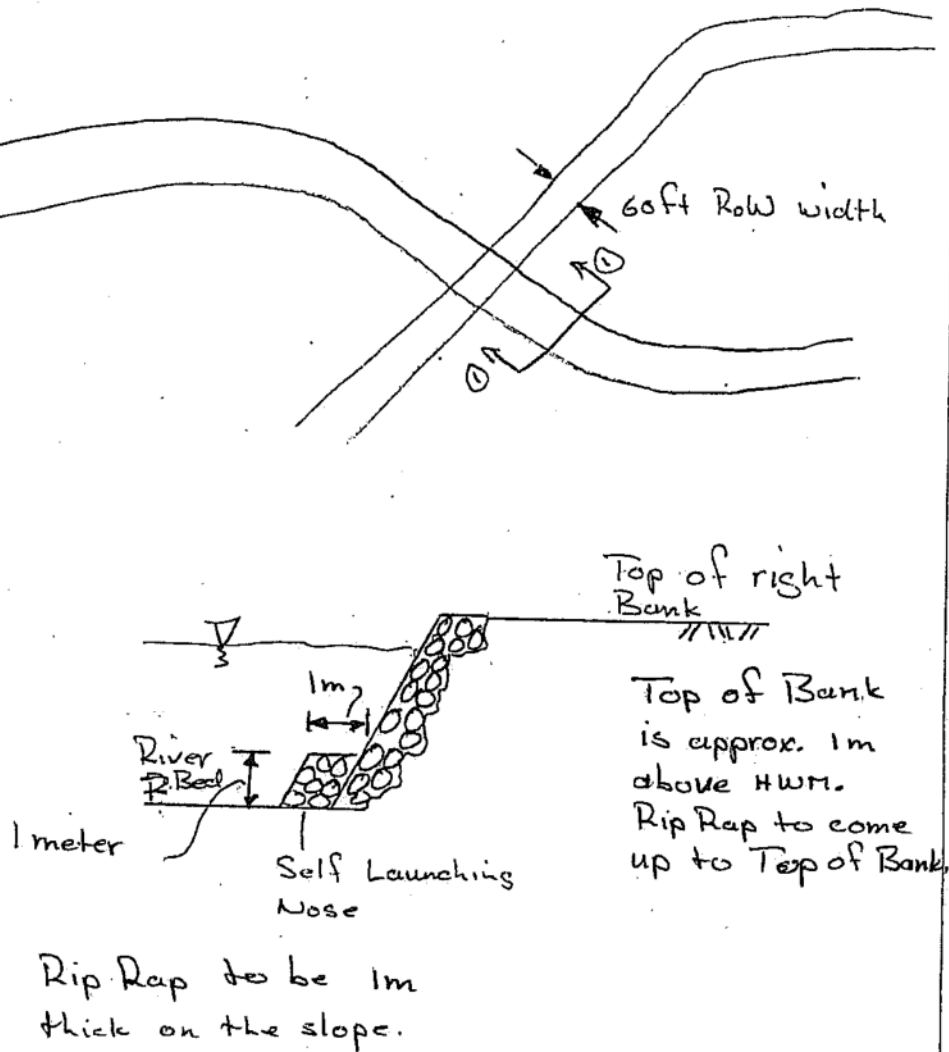 60ft RoW width
1
1
Top of right
Bank
1m
River
R.Bed
1 meter
Self Launching
Nose
Top of Bank
is approx. 1m
above HWM.
Rip Rap to come
up to Top of Bank.
Rip Rap to be 1m
thick on the slope.